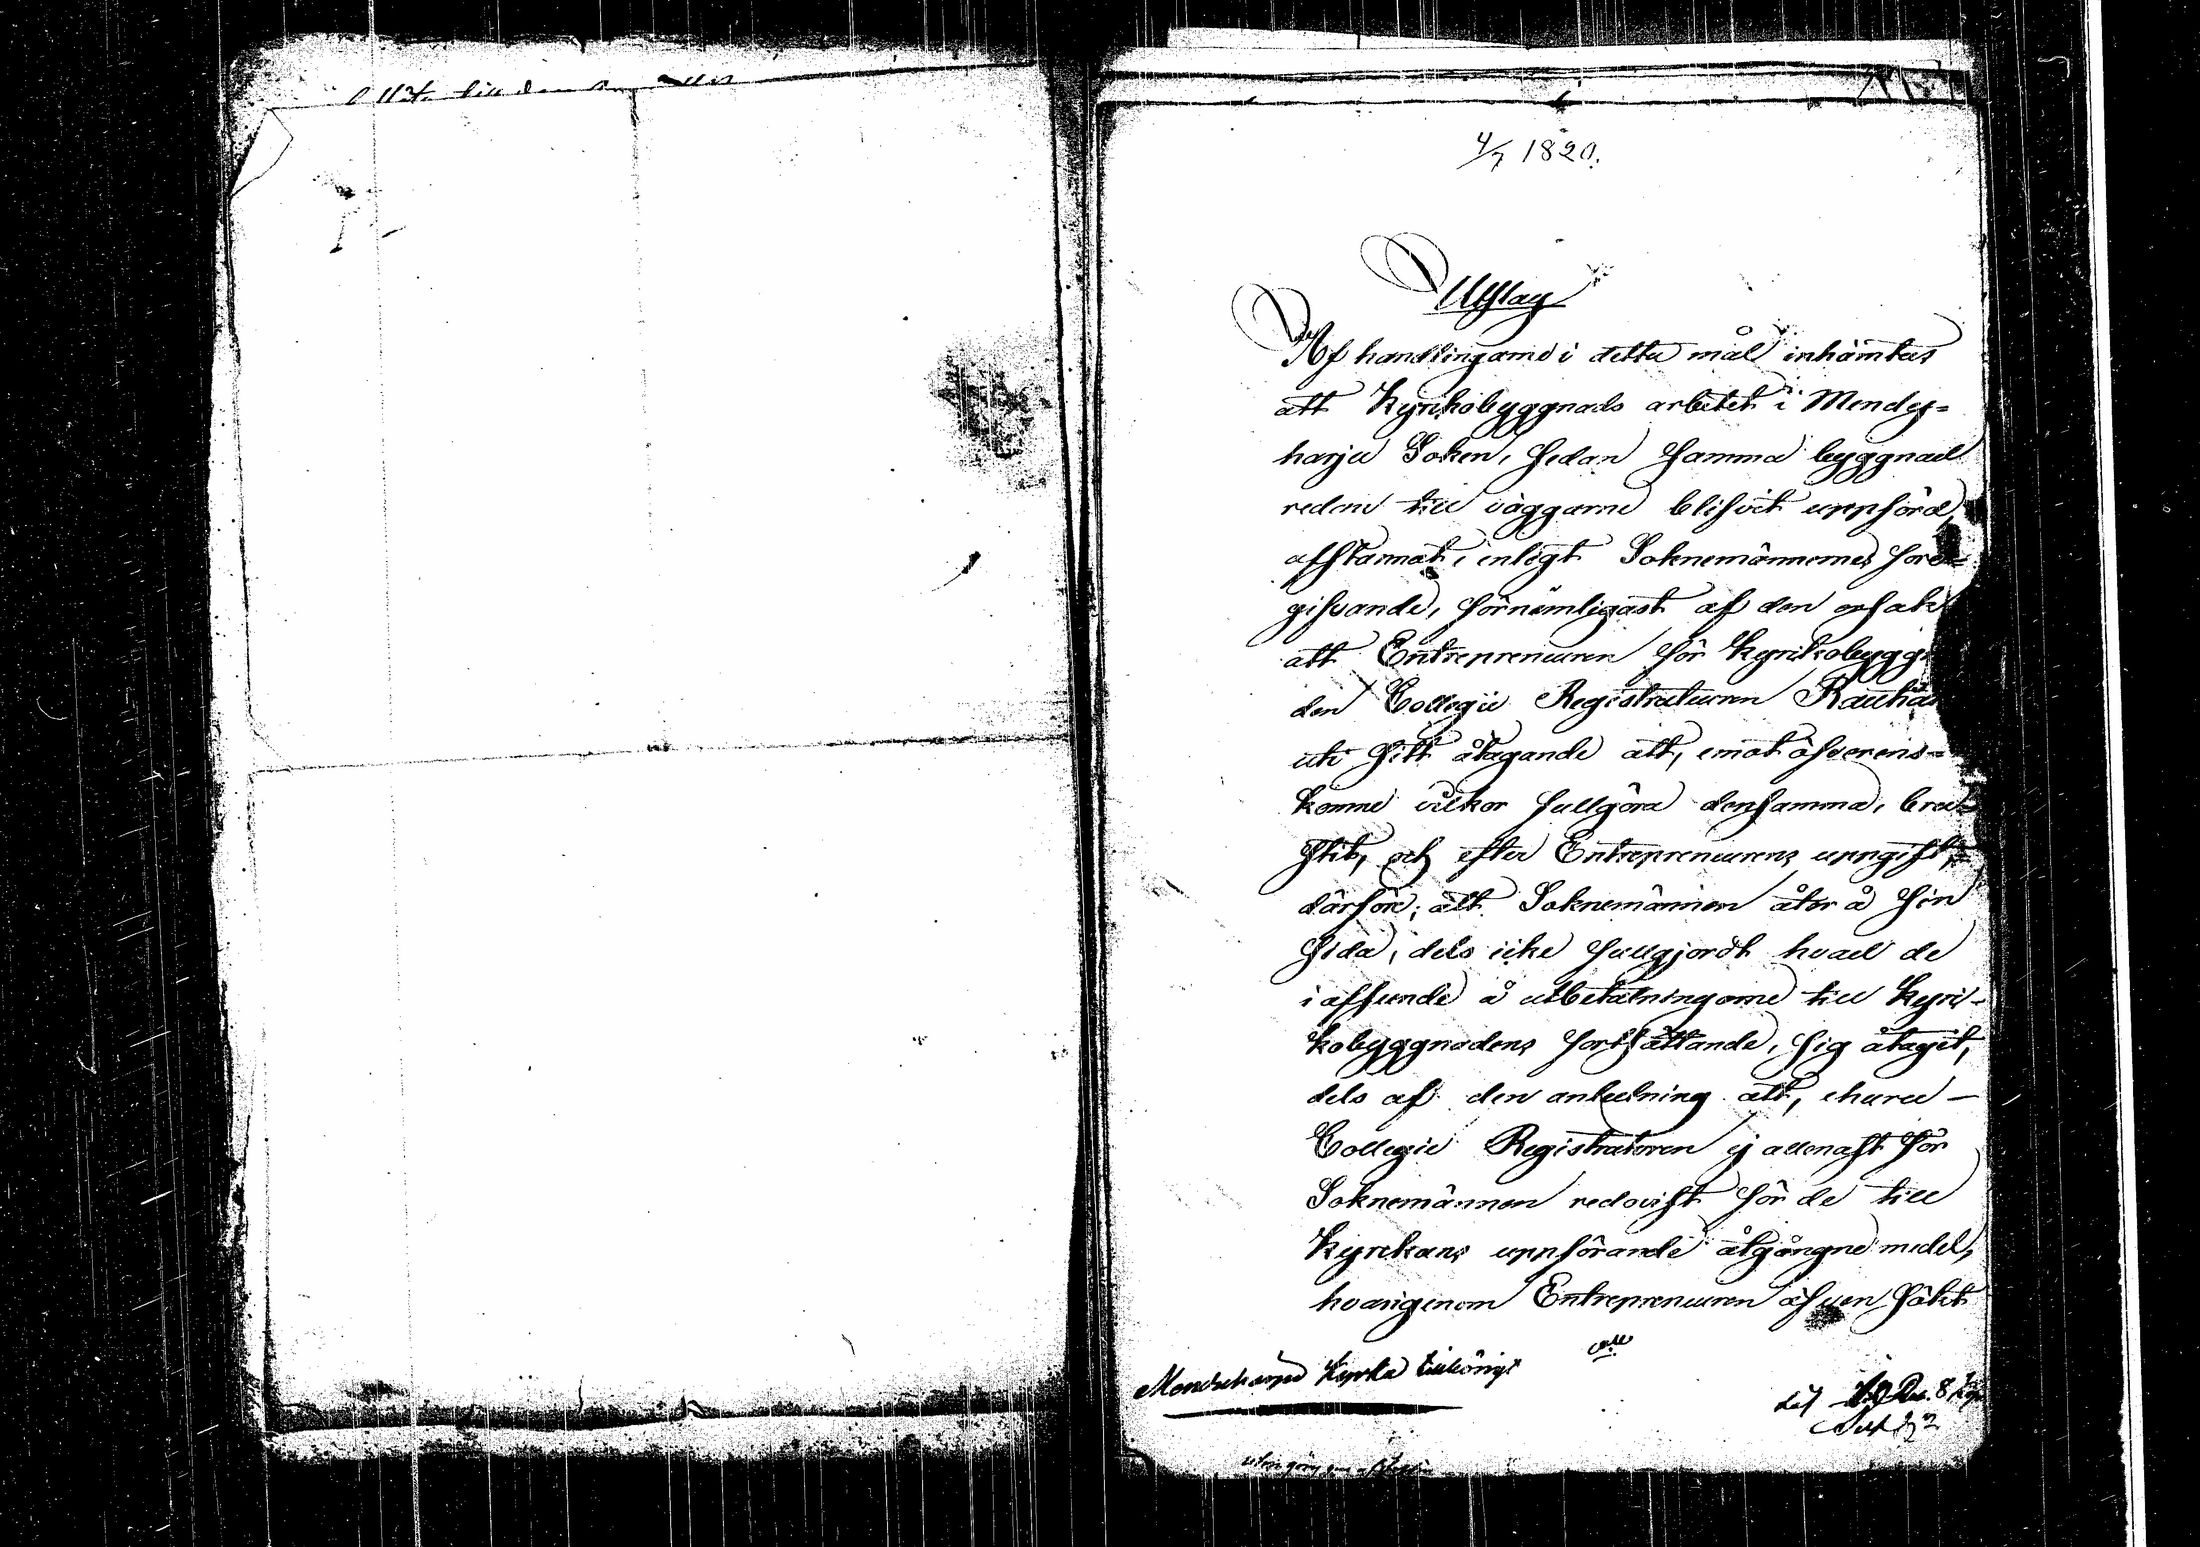 4/7 1820.
Utslag
Af handlingarne i detta mål inhämtas
att Kyrkobyggnads arbetet i Mendes=
harju Soken, sedan samma byggnad
redan till väggarne blifvit uppförd,
afstannat, enligt Soknemännernes före=
gifvande, förnämligast af den orsak
att Entrepreneuren för Kyrkobygg
den Collegii Registratoren Rauha
uti sitt åtagande att, emot öfverens=
komne vilkor fullgöra densamma, bru=
stit, och efter Entrepreneurens uppgift,
därföre, att Soknemännen åter å sin
sida, dels icke fullgjordt hvad de
i afseende å utbetalningarne till Kyr-
kobyggnadens fortsättande, sig åtagit,
dels af den anledning att, ehuru
Collegii Registratoren ej allenast för
Soknemännen redovist för de till
Kyrkans uppförande åtgångne medel,
hvarigenom Entrepreneuren äfven sökt
Mendeharju Kyrka tillhörigt